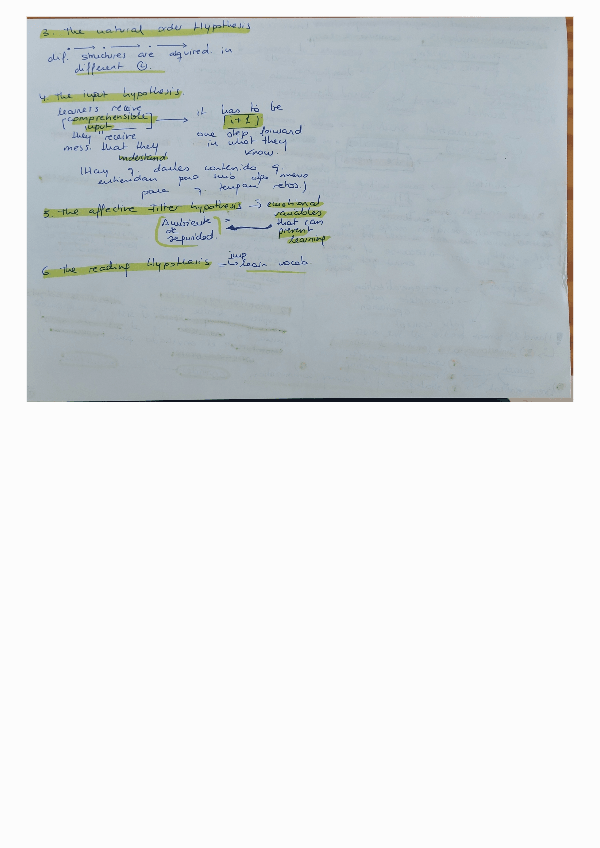 3. The natural order Hypothesis
dif. structures are adquired in
different
4. The input hypothesis.
learners receive
(comprehensible
input)
they receive
mess. that they
understand
it has to be
i+1)
one step forward
in what they
know.
(Hay q. darles contenido q
entiendan pero
para q. tengan retos.)
5. The affective Filter hypothesis → emotional
variables
that can
prevent
learning
Ambiente
de
seguridad.
6 The reading Hypothesis → learn vocab.